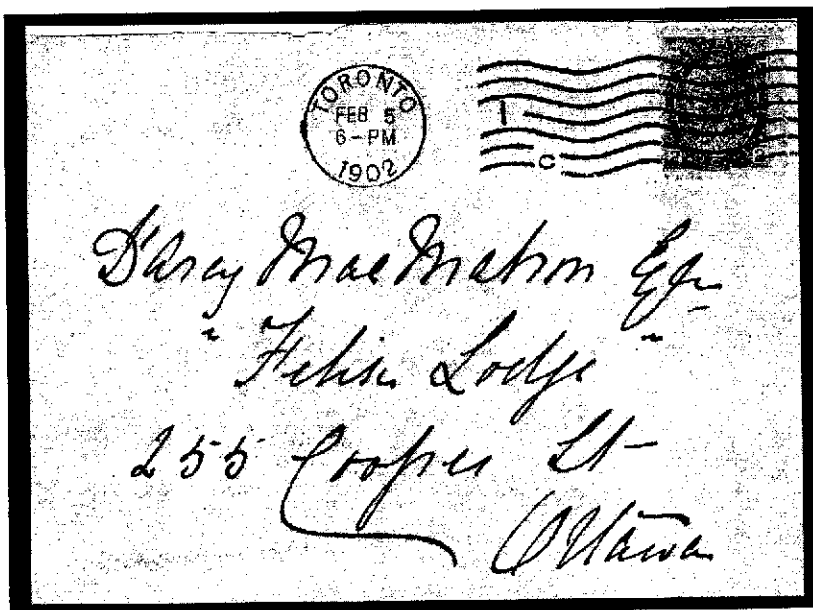 TORONTO
FEB 5
6-PM
1902
1
C
D'Arcy MacMahon Esq
" Lodge "
255 Cooper St
Ottawa